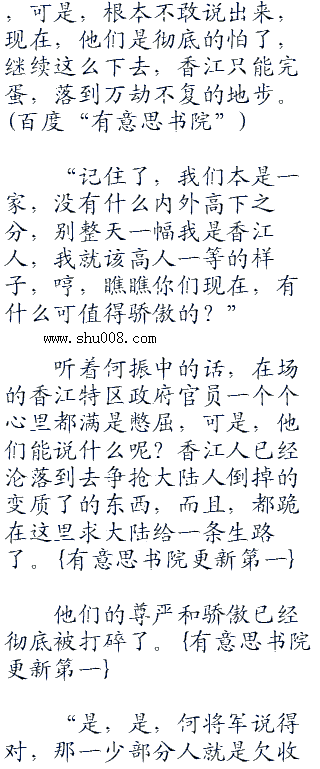 ，可是，根本不敢说出来，
现在，他们是彻底的怕了，
继续这么下去，香江只能完
蛋，落到万劫不复的地步。
(百度“有意思书院”)
“记住了，我们本是一
家，没有什么内外高下之
分，别整天一幅我是香江
人，我就该高人一等的样
子，哼，瞧瞧你们现在，有
什么可值得骄傲的？”
www.shu008.com
听着何振中的话，在场
的香江特区政府官员一个个
心里都满是憋屈，可是，他
们能说什么呢？香江人已经
沦落到去争抢大陆人倒掉的
变质了的东西，而且，都跪
在这里求大陆给一条生路
了。{有意思书院更新第一}
他们的尊严和骄傲已经
彻底被打碎了。{有意思书院
更新第一}
“是，是，何将军说得
对，那一少部分人就是欠收